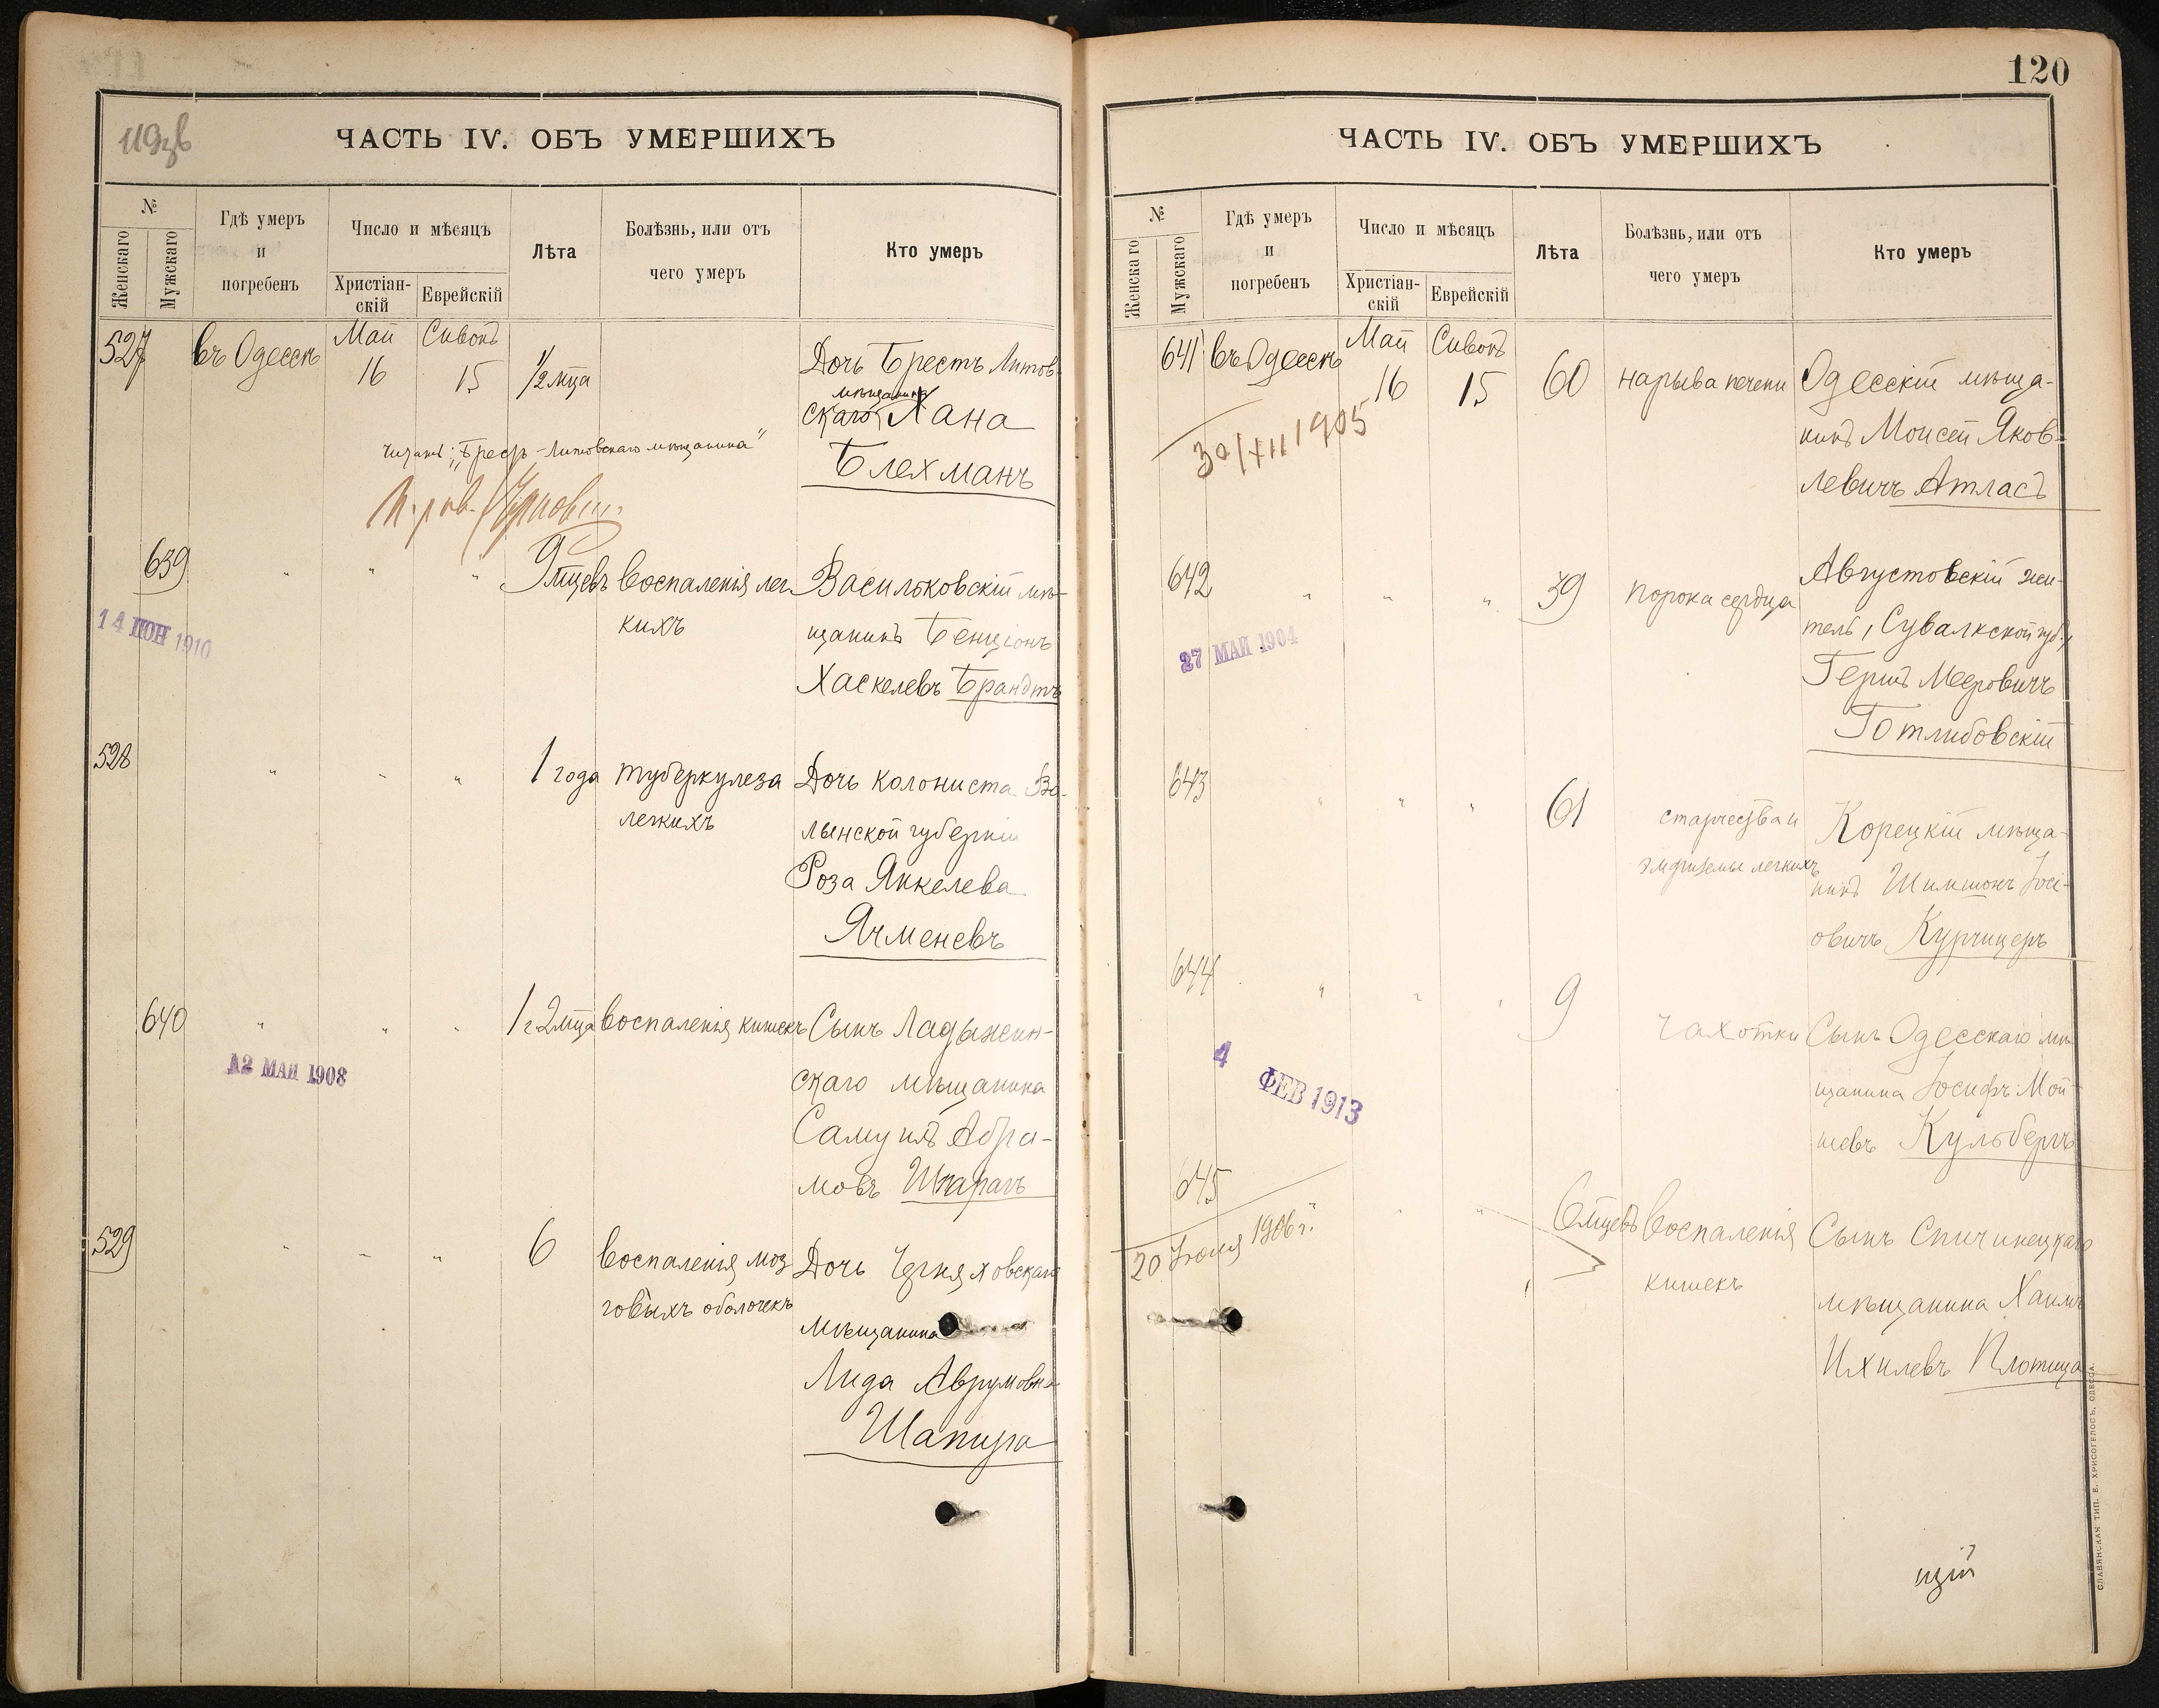 119об
ЧАСТЬ IV. ОБЪ УМЕРШИХЪ
№
Женскаго
Мужскаго
Гдѣ умеръ
и
погребенъ
Число и мѣсяцъ
Христіан-
скій
Еврейскій
Лѣта
Болѣзнь, или отъ
чего умеръ
Кто умеръ
527
въ Одессѣ
Май
16
Сивонъ
15
1/2 мца
Дочь Брестъ Литов-
мѣщанина
скаго Хана
Блехманъ
читать: „Брестъ-Литовскаго мѣщанина"
639
" " "
9 мцевъ
воспаленія лег-
кихъ
Васильковскій мѣ-
щанинъ Бенціонъ
Хаскелевъ Брандтъ
14 ІЮН 1910
528
" " "
1 года
туберкулеза
легкихъ
Дочь колониста Во-
лынской губерніи
Роза Янкелева
Ячменевъ
640
" " "
1 г 2 мца
воспаленія кишекъ
Сынъ Ладыжин-
скаго мѣщанина
Самуилъ Абра-
мовъ Шпарагъ
12 МАЙ 1908
529
" " "
6
воспаленія моз
говыхъ оболочекъ
Дочь Черняховскаго
мѣщанина
Лида Аврумовна
Шапира
120
ЧАСТЬ IV. ОБЪ УМЕРШИХЪ
№
Женскаго
Мужскаго
Гдѣ умеръ
и
погребенъ
Число и мѣсяцъ
Христіан-
скій
Еврейскій
Лѣта
Болѣзнь, или отъ
чего умеръ
Кто умеръ
641
въ Одессѣ
Май
16
Сивонъ
15
60
нарыва печени
Одесскій мѣща-
нинъ Моисей Яков-
левичъ Атласъ
30/XII 1905
642
" " "
39
порока сердца
Августовскій жи-
тель, Сувалкской губ.,
Гершъ Мееровичъ
Готлибовскій
27 МАЙ 1904
643
" " "
61
старчества и
эмфиземы легкихъ
Корецкій мѣща-
нинъ Шимшонъ Іосі-
овичъ Курчицеръ
644
" " "
9
чахотки
Сынъ Одесскаго мѣ
щанина Іосифъ Мой-
шевъ Кульбергъ
4 ФЕВ 1913
645
" "
6 мцевъ
воспаленія
кишекъ
Сынъ Спичинецкаго
мѣщанина Хаимъ
Ихилевъ Плотица
20 Іюля 1906 г.
цій
СЛАВЯНСКАЯ ТИП. Е. ХРИСОГЕЛОСЪ, ОДЕССА.